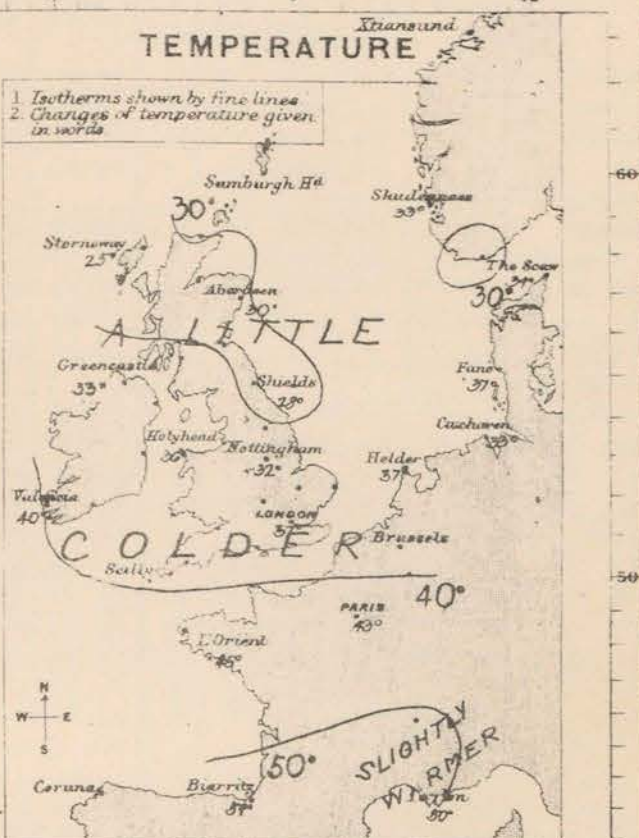 Xtiansund
TEMPERATURE
1 Isotherms shown by fine lines
2. Changes of temperature given
in words
60
Sumburgh Hd
Skudesness
33°
30°
Stornoway
25°
The Scaw
30°
Aberdeen
30°
A LITTLE
Greencastle
33°
Shields
Fano
37°
Cuxhaven
33°
Holyhead
36°
Nottingham
32°
Helder
37°
Valencia
40°
LONDON
37°
COLDER
Brussels
Scilly
50
40°
PARIS
43°
L'Orient
45°
N
W E
S
SLIGHTLY
WARMER
50°
Coruna
Biarritz
57°
50°